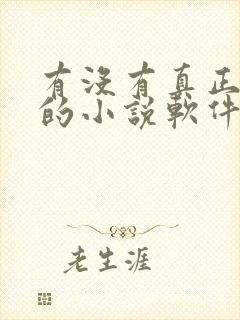 有沒有真正
的小說軟件
老生涯